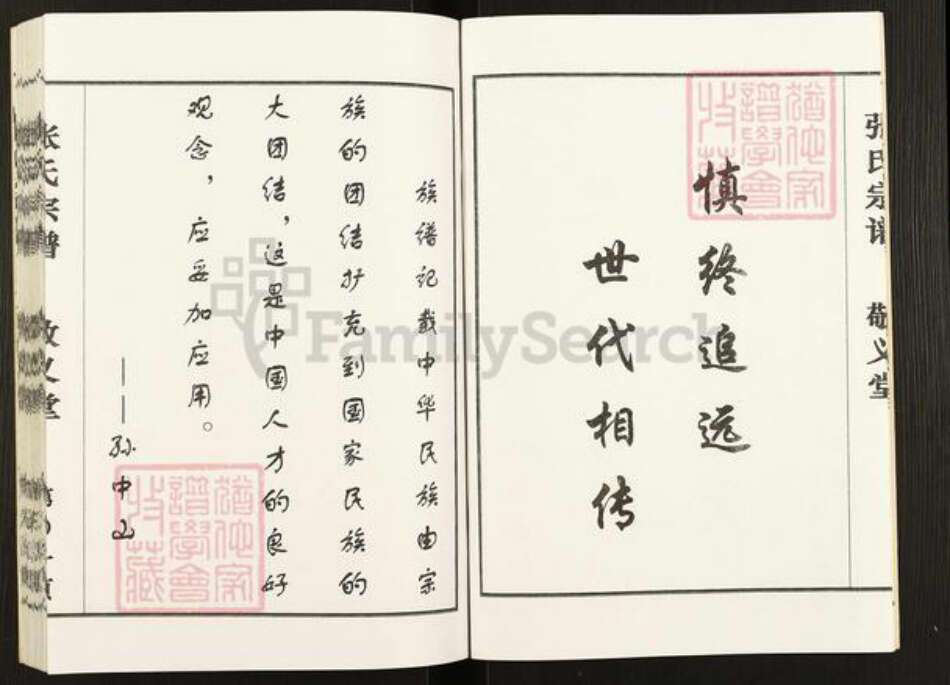 张氏宗谱 敬义堂
慎终追远
世代相传
族谱记载中华民族由宗
族的团结扩充到国家民族的
大团结，这是中国人才的良好
观念，应妥加应用。
——孙中山
张氏宗谱 敬义堂
FamilySearch
谱学会
收藏
谱学会
收藏